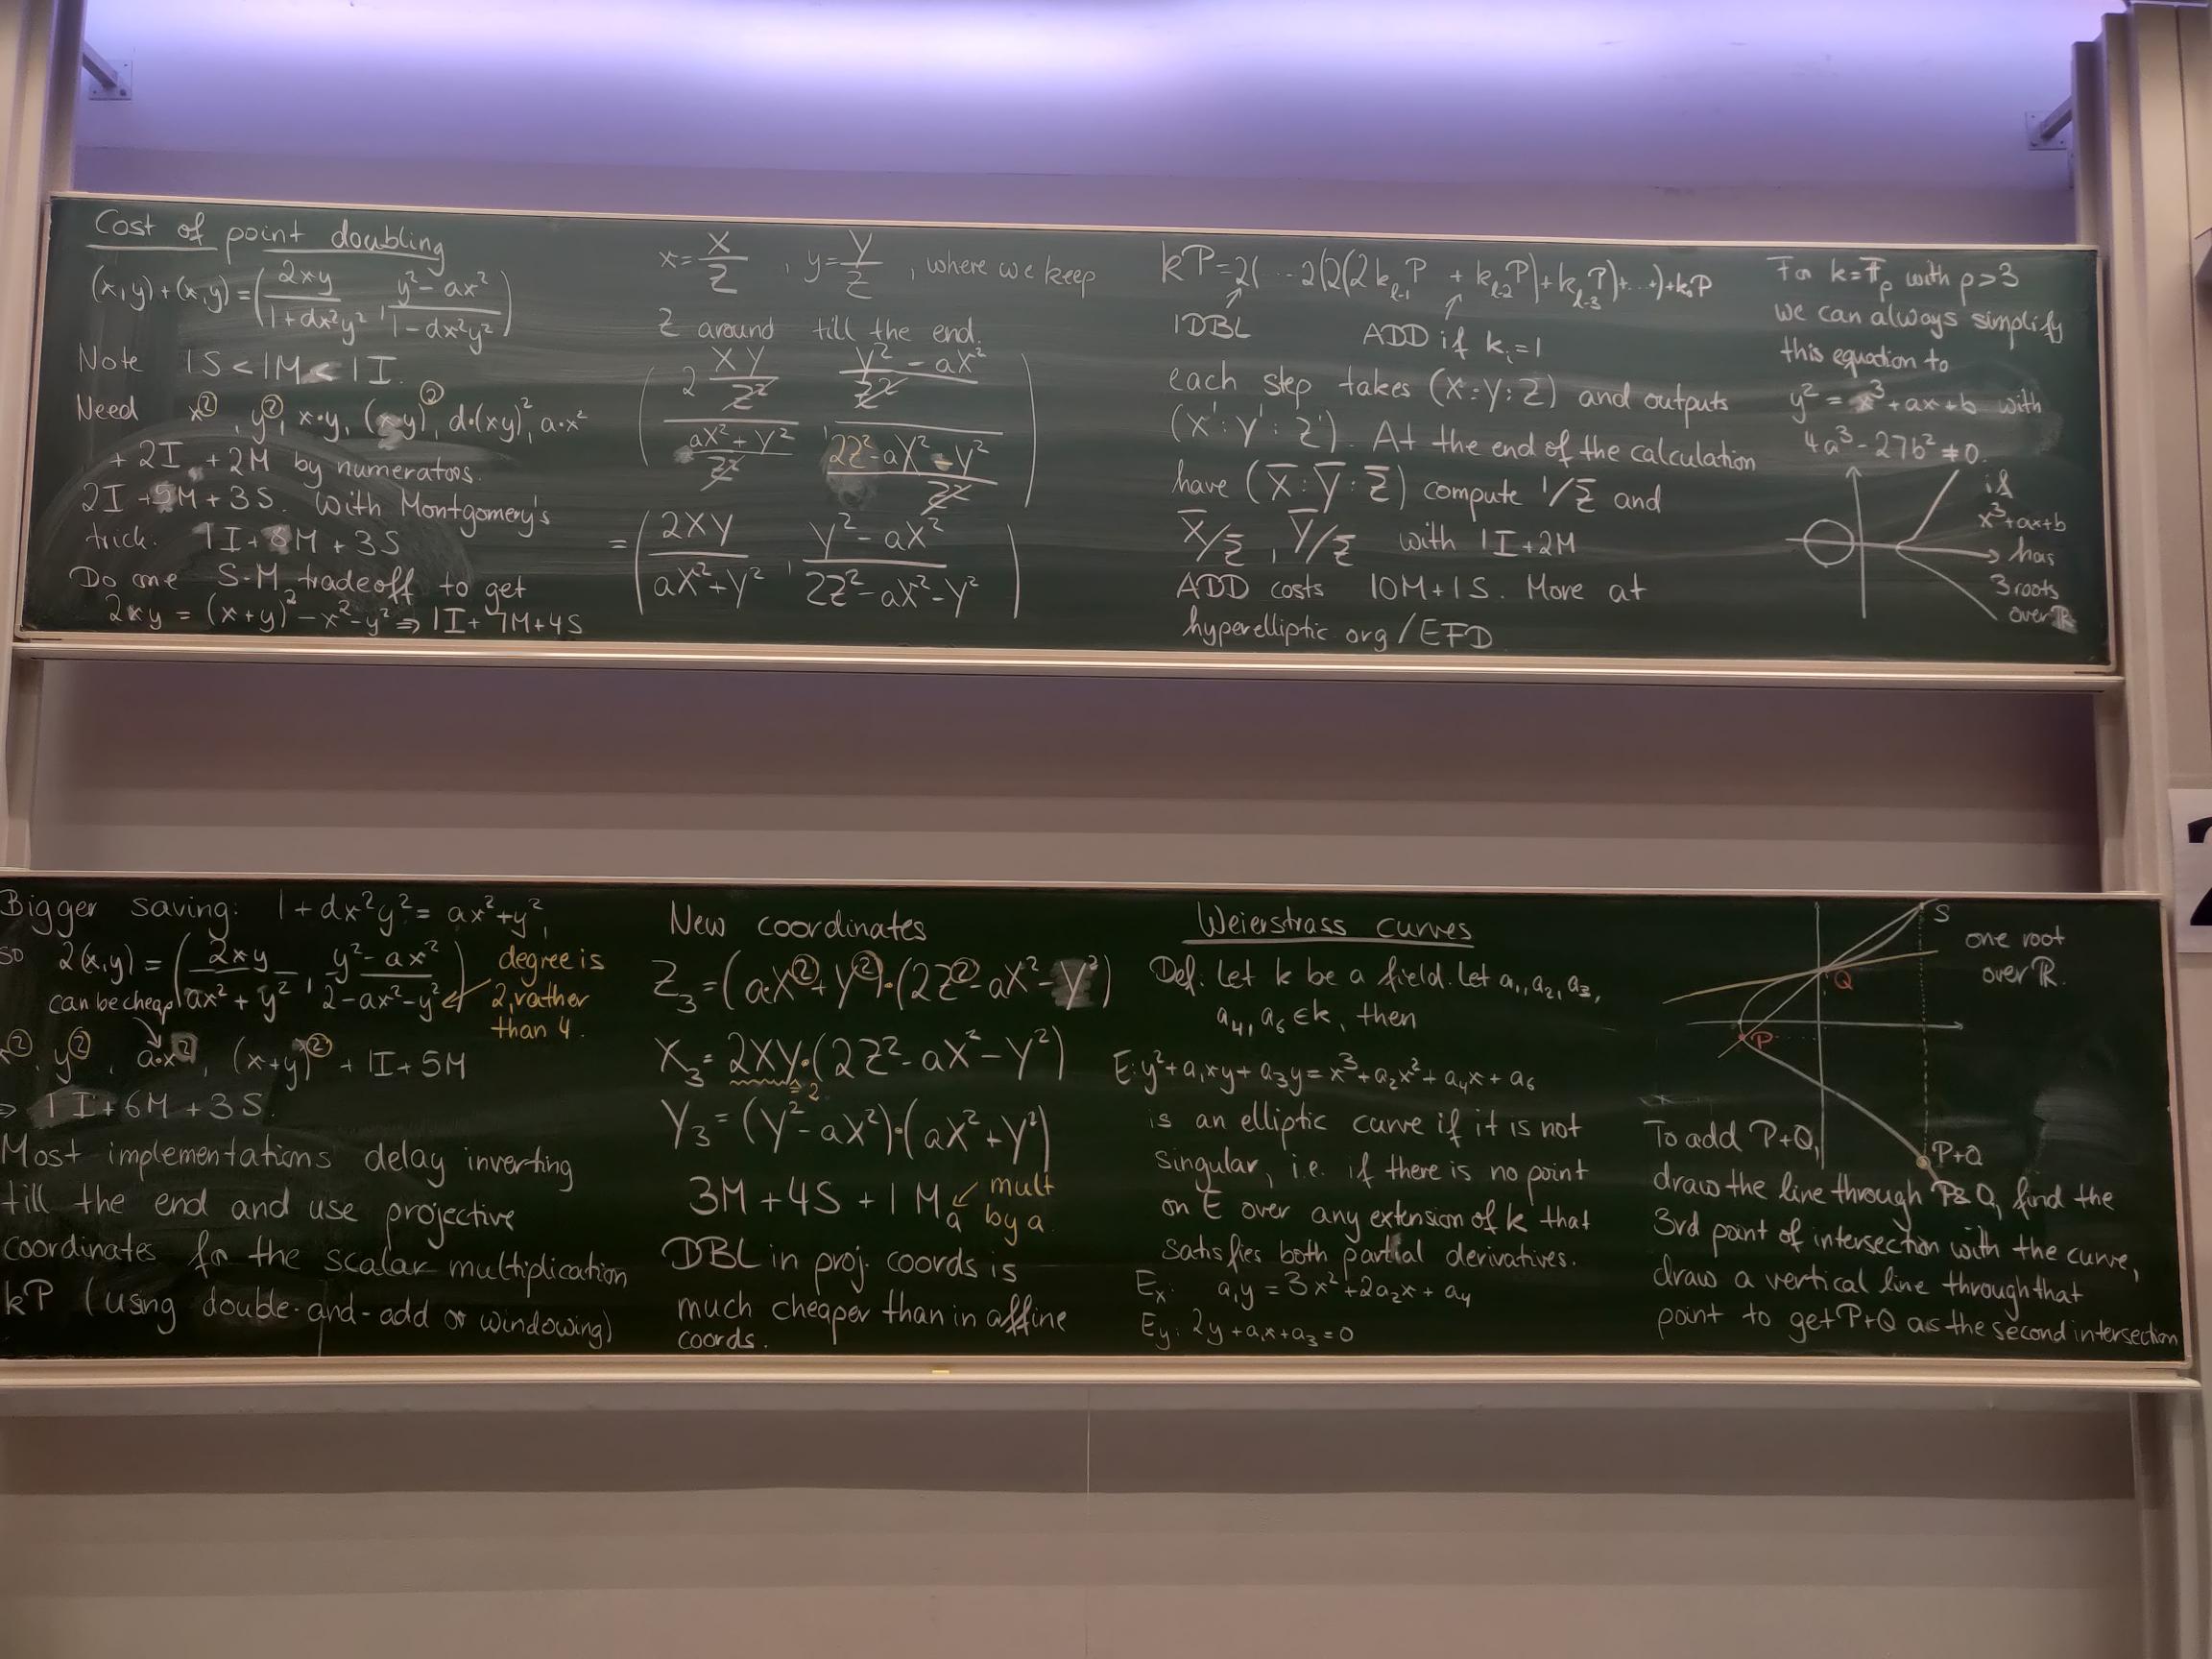 Cost of point doubling
(x,y)+(x,y)=(2xy/(1+dx²y²), (y²-ax²)/(1-dx²y²))
Note 1S<1M<1I.
Need x², y², x·y, (xy)², d·(xy)², a·x²
+ 2I + 2M by numerators.
2I+5M+3S. With Montgomery's
trick. 1I+8M+3S
Do one S-M tradeoff to get
2xy = (x+y)²-x²-y² ⇒ 1I+7M+4S
x=X/Z, y=Y/Z, where we keep
Z around till the end.
(2 XY/Z² / (aX²+Y²)/Z², (Y²-aX²)/Z² / (2Z²-aX²-Y²)/Z²)
= (2XY/(aX²+Y²), (Y²-aX²)/(2Z²-aX²-Y²))
kP=2(...2(2(2k_{l-1}P + k_{l-2}P)+k_{l-3}P)+...)+k₀P
1DBL ADD if k_i=1
each step takes (X:Y:Z) and outputs
(X':Y':Z'). At the end of the calculation
have (X̄:Ȳ:Z̄) compute 1/Z̄ and
X̄/Z̄, Ȳ/Z̄ with 1I+2M
ADD costs 10M+1S. More at
hyperelliptic.org/EFD
For k=F_p with p>3
we can always simplify
this equation to
y²=x³+ax+b with
4a³-27b²≠0.
if
x³+ax+b
has
3 roots
over R
Bigger saving: 1+dx²y²=ax²+y²,
so 2(x,y)=(2xy/(ax²+y²), (y²-ax²)/(2-ax²-y²))
degree is
2, rather
than 4.
can be cheap
x², y², a·x², (x+y)² + 1I+5M
⇒ 1I+6M+3S.
Most implementations delay inverting
till the end and use projective
coordinates for the scalar multiplication
kP (using double-and-add or windowing)
New coordinates
Z₃=(a·X²+Y²)·(2Z²-aX²-Y²)
X₃=2XY·(2Z²-aX²-Y²)
=2
Y₃=(Y²-aX²)·(aX²+Y²)
3M+4S+1M_a mult
by a
DBL in proj. coords is
much cheaper than in affine
coords.
Weierstrass curves
Def. Let k be a field. Let a₁,a₂,a₃,
a₄,a₆∈k, then
E:y²+a₁xy+a₃y=x³+a₂x²+a₄x+a₆
is an elliptic curve if it is not
singular, i.e. if there is no point
on E over any extension of k that
satisfies both partial derivatives.
Ex: a₁y=3x²+2a₂x+a₄
Ey: 2y+a₁x+a₃=0
S
one root
over R.
Q
P
P+Q
To add P+Q,
draw the line through P&Q, find the
3rd point of intersection with the curve,
draw a vertical line through that
point to get P+Q as the second intersection